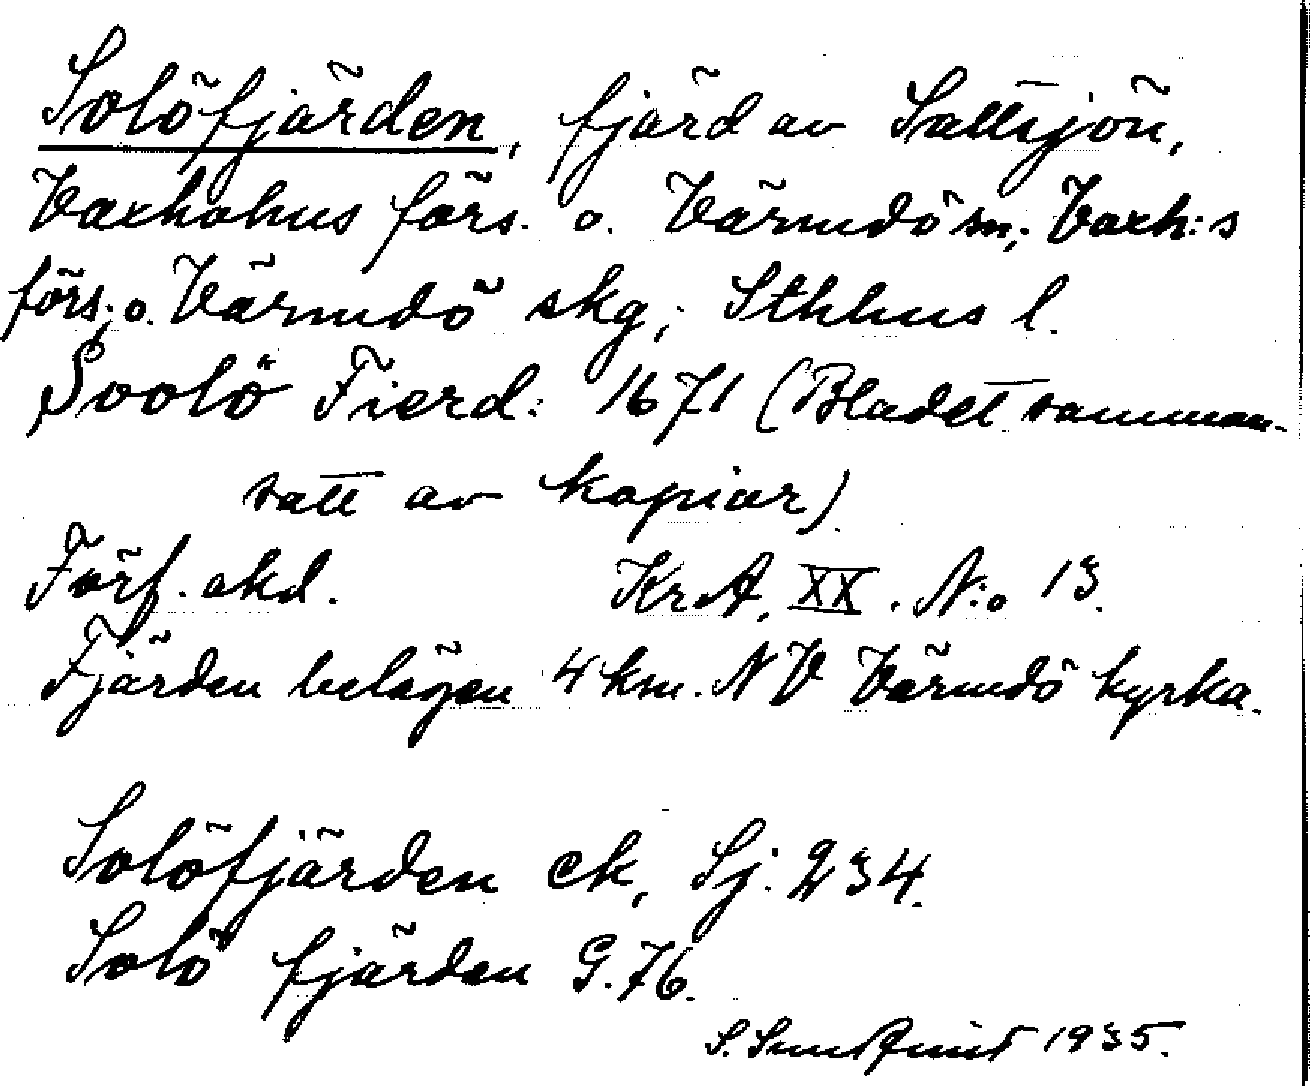 Solöfjärden, fjärd av Saltsjön,
Vaxholms förs. o. Värmdö sn; Vaxh:s
förs. o. Värmdö skg; Sthlms l.
Soolö Fierd: 1671 (Bladet samman-
satt av kopior)
Förf. okd. KrA, XX. N:o 13.
Fjärden belägen 4 km. NV Värmdö kyrka.
Solöfjärden ek, Sj. 234.
Solö fjärden G. 76.
S. Sundqvist 1935.